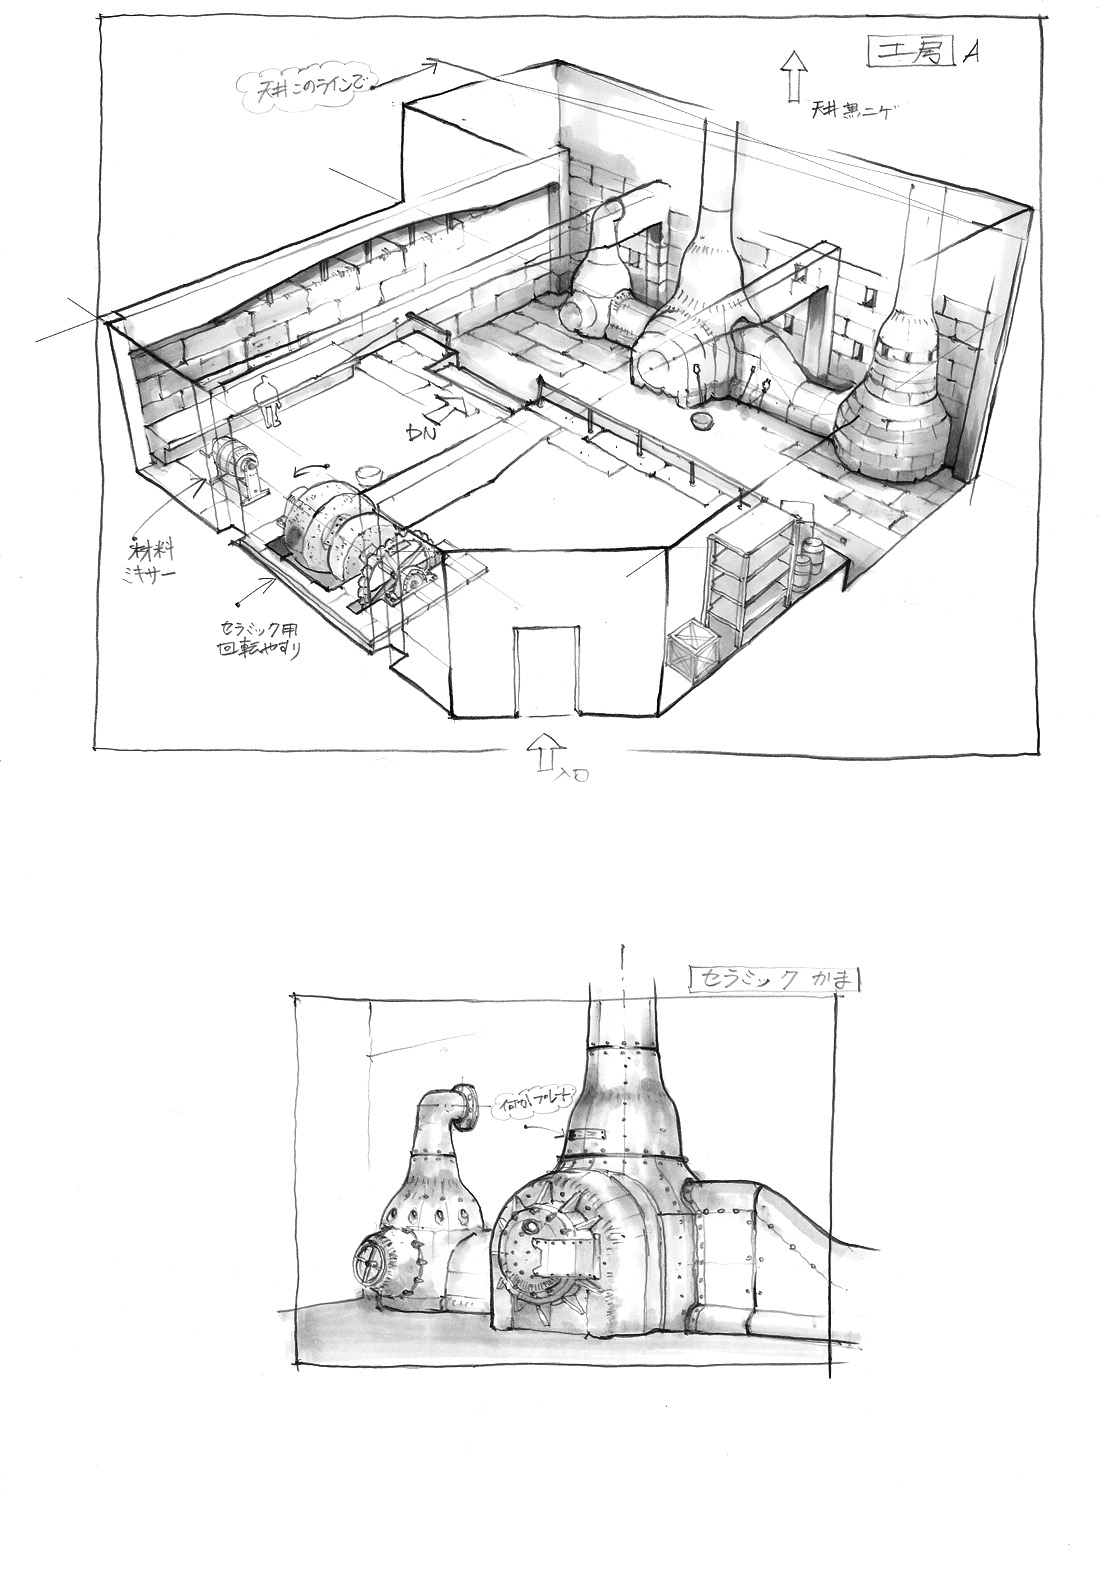 工房 A
天井このラインで
天井黒ニゲ
DN
材料
ミキサー
セラミック用
回転やすり
入口
セラミック かま
何かプレート